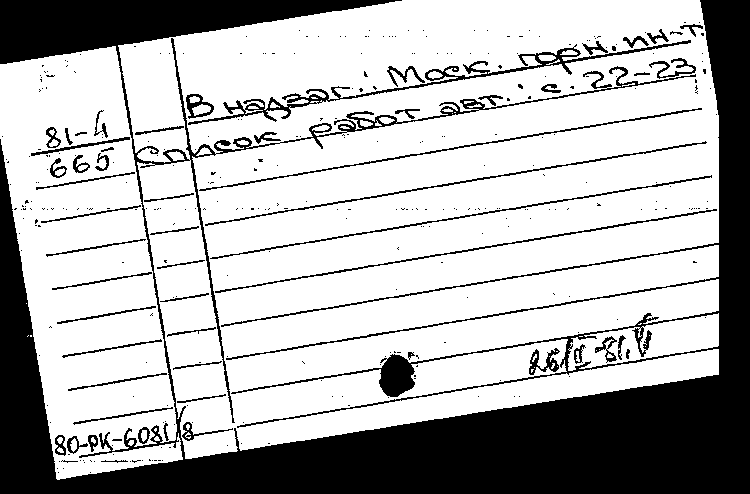 В надзаг.: Моск. горн. ин-т.
81-4
665
Список работ авт.: с. 22-23.
26/II-81.
80-РК-6081/8